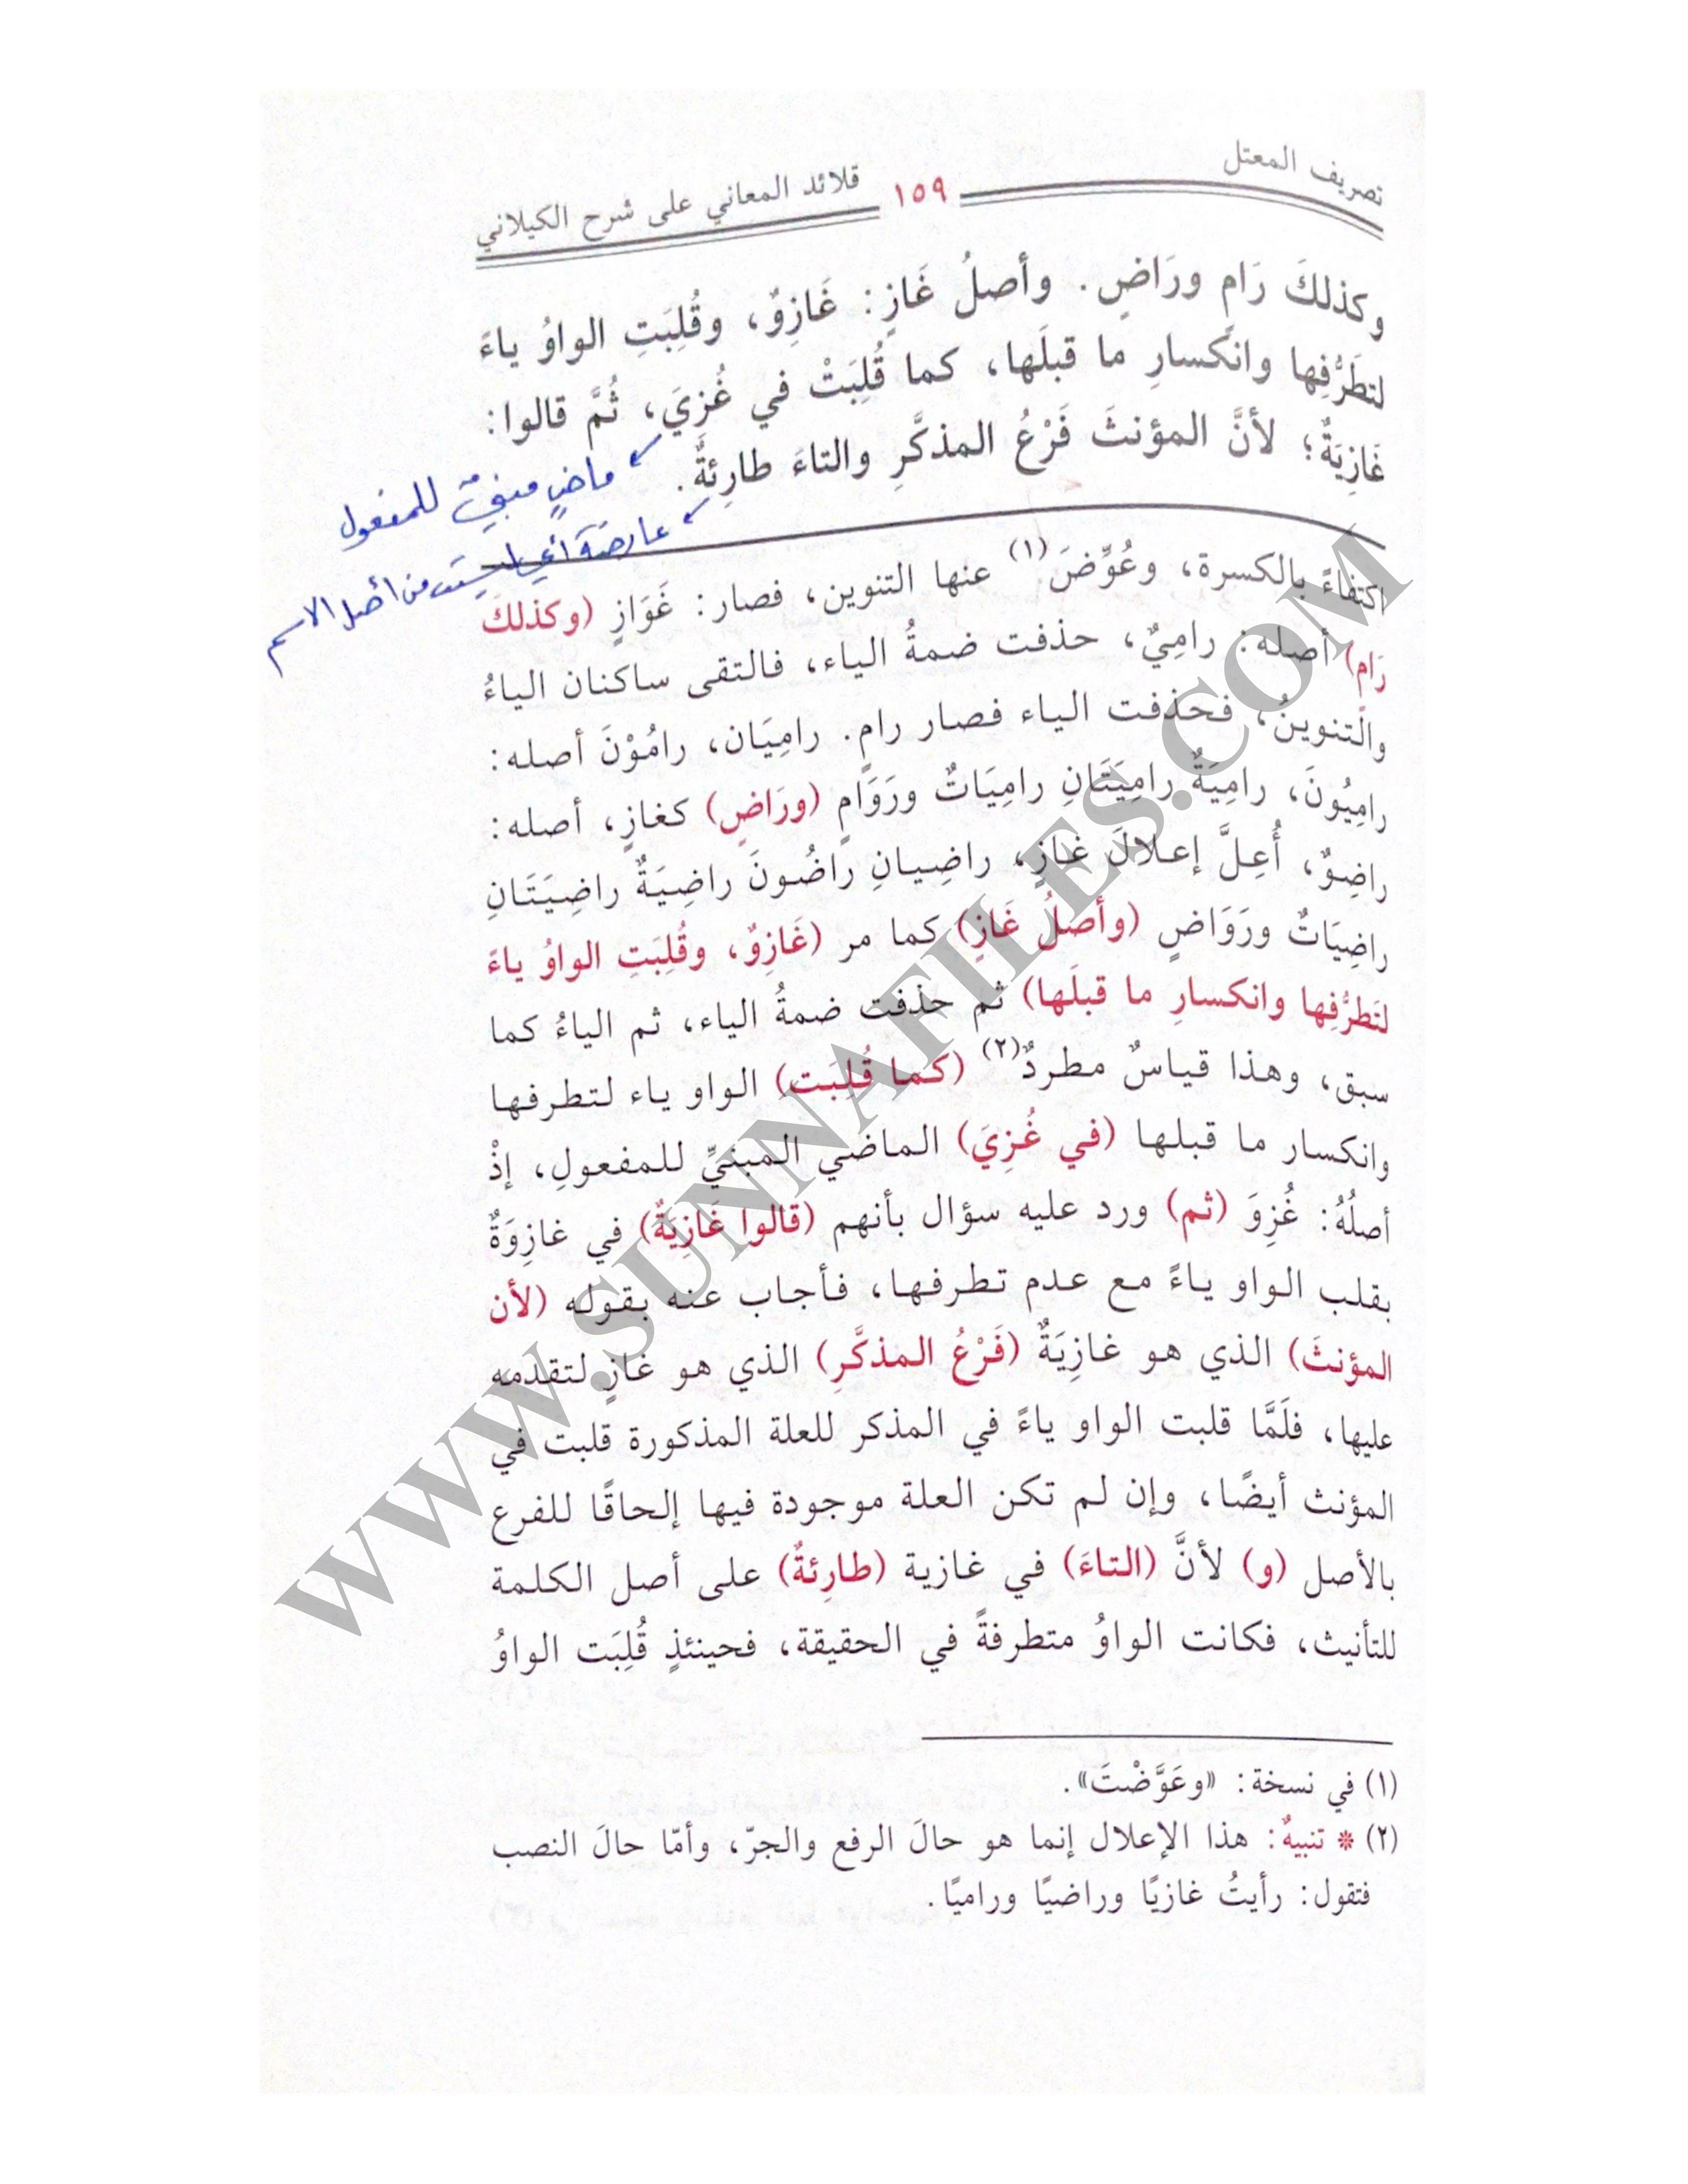 تصريف المعتل ١٥٩ قلائد المعاني على شرح الكيلاني
وكذلكَ رَامٍ ورَاضٍ. وأصلُ غَازٍ: غَازِوٌ، وقُلِبَتِ الواوُ ياءً
لتطَرُّفِها وانكسارِ ما قبلَها، كما قُلِبَتْ في غُزِيَ، ثُمَّ قالوا:
غَازِيَةٌ؛ لأنَّ المؤنثَ فَرْعُ المذكَّرِ والتاءَ طارِئةٌ.
ماضٍ مبني للمفعول
عارضة أي ليست من أصل الاسم
اكتفاءً بالكسرة، وعُوِّضَ(١) عنها التنوين، فصار: غَوَازٍ (وكذلكَ
رَامٍ) أصله: رامِيٌ، حذفت ضمةُ الياء، فالتقى ساكنان الياءُ
والتنوينُ، فحذفت الياء فصار رامٍ. رامِيَان، رامُوْنَ أصله:
رامِيُونَ، رامِيَةٌ رامِيَتَانِ رامِيَاتٌ ورَوَامٍ (ورَاضٍ) كغازٍ، أصله:
راضِوٌ، أُعِلَّ إعلالَ غازٍ، راضِيانِ راضُونَ راضِيَةٌ راضِيَتَانِ
راضِيَاتٌ ورَوَاضٍ (وأصلُ غَازٍ) كما مر (غَازِوٌ، وقُلِبَتِ الواوُ ياءً
لتَطرُّفِها وانكسارِ ما قبلَها) ثم حذفت ضمةُ الياء، ثم الياءُ كما
سبق، وهذا قياسٌ مطردٌ(٢) (كما قُلِبَت) الواو ياء لتطرفها
وانكسار ما قبلها (في غُزِيَ) الماضي المبنيِّ للمفعولِ، إذْ
أصلُهُ: غُزِوَ (ثم) ورد عليه سؤال بأنهم (قالوا غَازِيَةٌ) في غازِوَةٌ
بقلب الواو ياءً مع عدم تطرفها، فأجاب عنه بقوله (لأن
المؤنثَ) الذي هو غازِيَةٌ (فَرْعُ المذكَّرِ) الذي هو غازٍ لتقدمه
عليها، فلَمَّا قلبت الواو ياءً في المذكر للعلة المذكورة قلبت في
المؤنث أيضًا، وإن لم تكن العلة موجودة فيها إلحاقًا للفرع
بالأصل (و) لأنَّ (التاءَ) في غازية (طارِئةٌ) على أصل الكلمة
للتأنيث، فكانت الواوُ متطرفةً في الحقيقة، فحينئذٍ قُلِبَت الواوُ
(١) في نسخة: «وعَوَّضْتَ».
(٢) * تنبيهٌ: هذا الإعلال إنما هو حالَ الرفع والجرّ، وأمّا حالَ النصب
فتقول: رأيتُ غازيًا وراضيًا وراميًا.
WWW.SUNNAFILES.COM